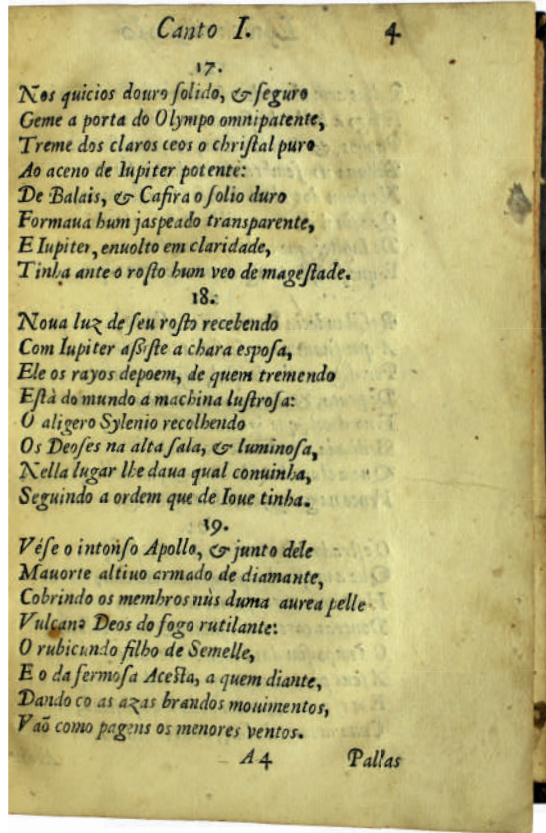 Canto I. 4
17.
Nos quicios douro ſolido, & ſeguro
Geme a porta do Olympo omnipatente,
Treme dos claros ceos o chriſtal puro
Ao aceno de Iupiter potente:
De Balais, & Cafira o ſolio duro
Formaua hum jaspeado transparente,
E Iupiter, enuolto em claridade,
Tinha ante o roſto hum veo de mageſtade.
18.
Noua luz de ſeu roſto recebendo
Com Iupiter aſsiſte a chara eſpoſa,
Ele os rayos depoem, de quem tremendo
Eſtà do mundo a machina luſtroſa:
O aligero Sylenio recolhendo
Os Deoſes na alta ſala, & luminoſa,
Nella lugar lhe daua qual conuinha,
Seguindo a ordem que de Ioue tinha.
19.
Véſe o intonſo Apollo, & junto dele
Mauorte altiuo armado de diamante,
Cobrindo os membros nùs duma aurea pelle
Vulcano Deos do fogo rutilante:
O rubicundo filho de Semelle,
E o da fermoſa Aceſta, a quem diante,
Dando co as azas brandos mouimentos,
Vaõ como pagens os menores ventos.
A4 Pallas